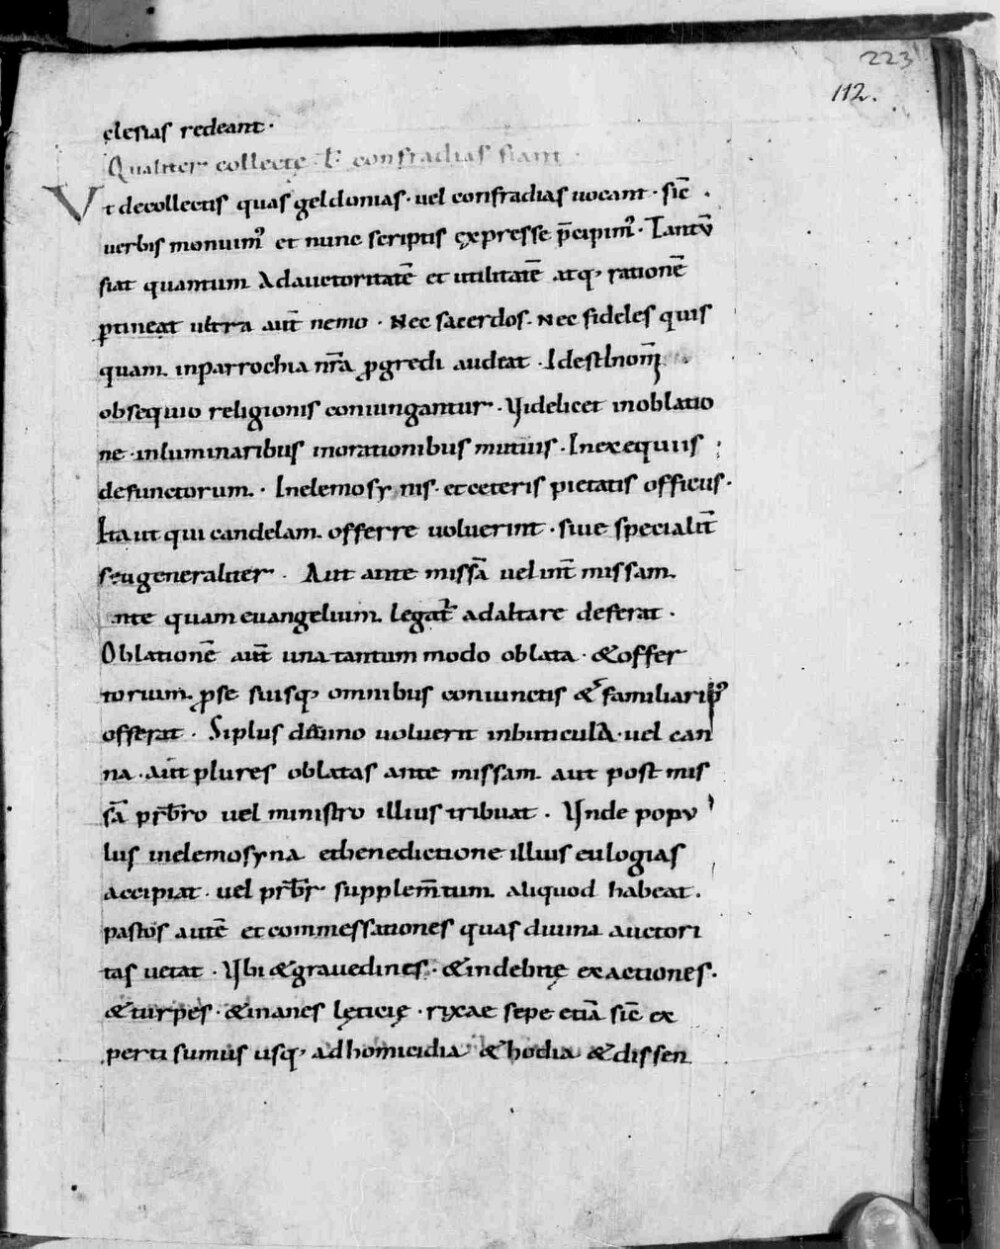 223
112.
clesias redeant.
Qualiter collectę ł confradias fiant
Vt decollectis quas geldonias. uel confradias uocant. sic̄.
uerbis monuim᷒ et nunc scriptis ęxpresse p̄cipim᷒. Tantū
fiat quantum Adauctoritatē et utilitatē atq; rationē
ꝑtineat ultra aut̄ nemo. Nec sacerdos. Nec fideles quis
quam. inparrochia nr̄a ꝓgredi audeat. Idest Inom̄
obsequio religionis coniungantur. Videlicet inoblatio
ne. inluminaribus inorationibus mutuis. Inexequiis
defunctorum. Inelemosynis. etceteris pietatis officiis.
Ita ut qui candelam. offerre uoluerint. siue specialit̄
seugeneraliter. Aut ante missā uel int̄ missam.
nte quam euangelium. legat̄ adaltare deferat.
Oblationē aut̄ una tantum modo oblata. &offer
torium. ꝓse suisq; omnibus coniunctis & familiarib;
offerat. Siplus deuino uoluerit inbuticulA. uel can
na. aut plures oblatas ante missam. aut post mis
sā prb̄ro uel ministro illius tribuat. Vnde popu
lus inelemosyna etbenedictione illius eulogias
accipiat. uel prb̄r supplem̄tum. aliquod habeat.
pastos autē et commessationes quas diuina auctori
tas uetat. Vbi &grauedines. &indebitę exactiones.
&turpes. &inanes lęticię. rixae sepe etiā sic̄ ex
perti sumus usq; adhomicidia &hodia &dissen